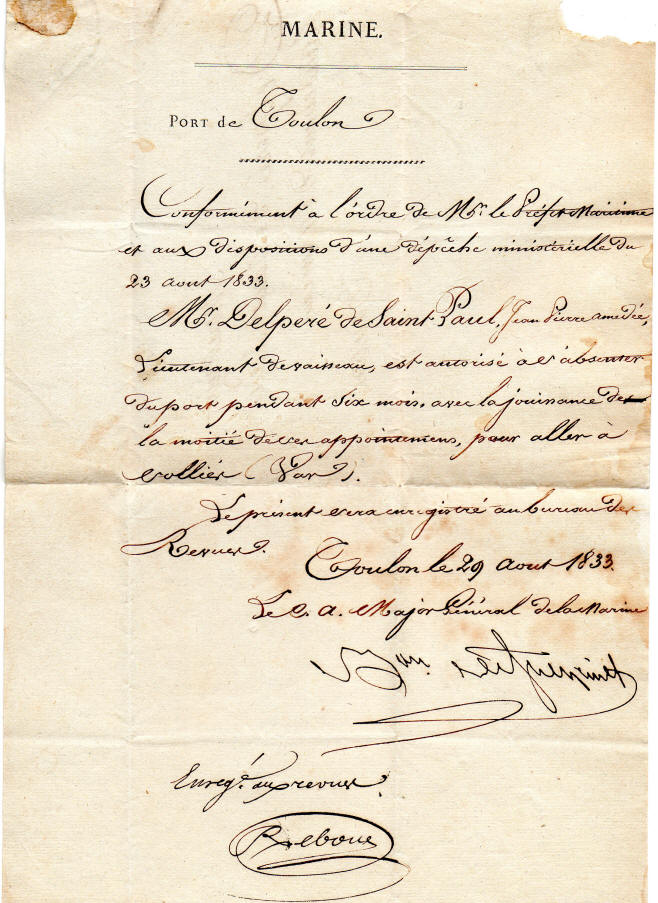 MARINE.
PORT de Toulon
Conformément à l'ordre de Mr. le Préfet Maritime
et aux dispositions d'une dépêche ministérielle du
23 aout 1833.
Mr. Delperé de Saint Paul, Jean Pierre amedée,
Lieutenant de vaisseau, est autorisé à s'absenter
du port pendant Six mois, avec la jouissance de
la moitié de ses appointemens, pour aller à
Solliés (Var).
Le présent sera enregistré au bureau des
Revues.
Toulon le 29 aout 1833.
Le C. a. Major Général de la Marine
Bon
Enregé. aux revues.
Reboul